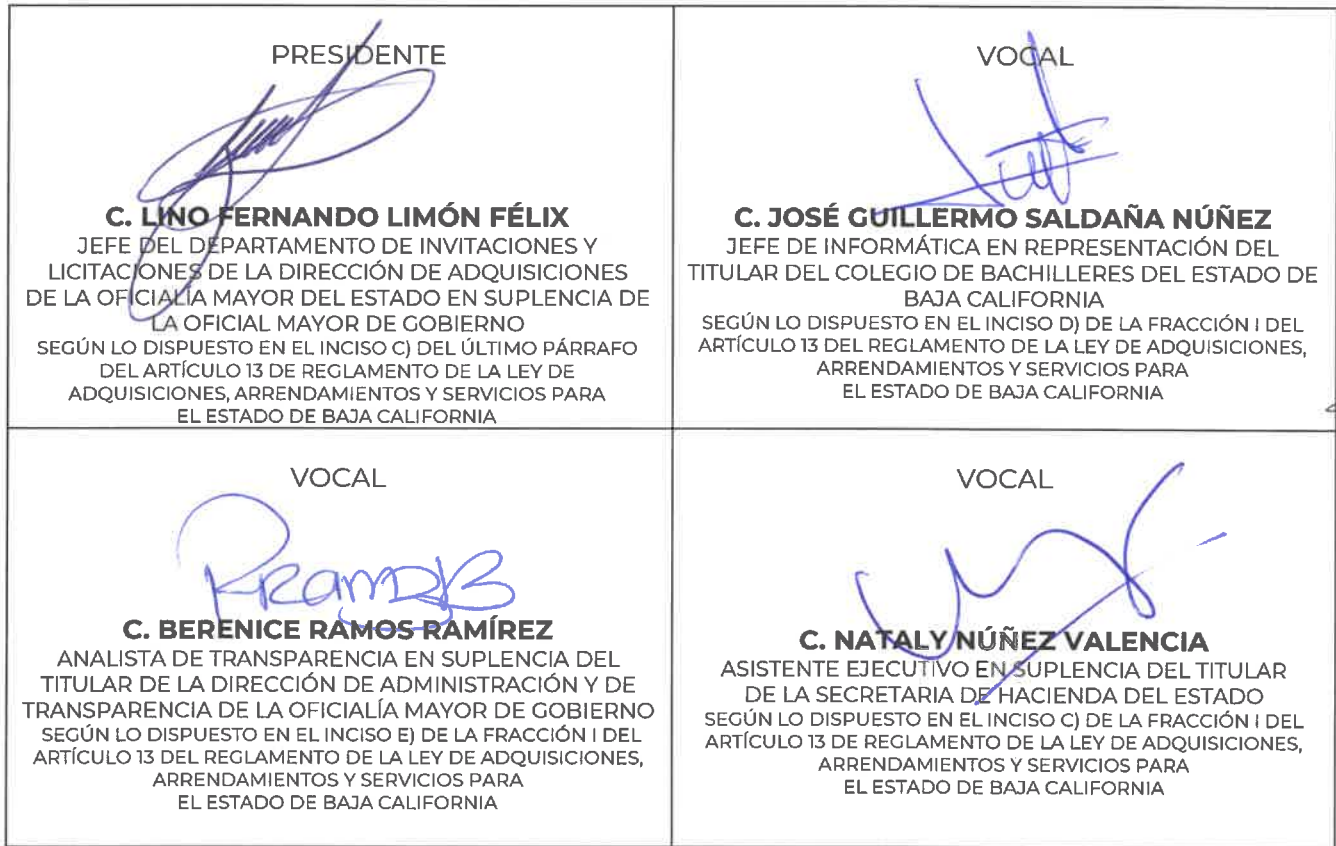 PRESIDENTE
C. LINO FERNANDO LIMÓN FÉLIX
JEFE DEL DEPARTAMENTO DE INVITACIONES Y
LICITACIONES DE LA DIRECCIÓN DE ADQUISICIONES
DE LA OFICIALÍA MAYOR DEL ESTADO EN SUPLENCIA DE
LA OFICIAL MAYOR DE GOBIERNO
SEGÚN LO DISPUESTO EN EL INCISO C) DEL ÚLTIMO PÁRRAFO
DEL ARTÍCULO 13 DE REGLAMENTO DE LA LEY DE
ADQUISICIONES, ARRENDAMIENTOS Y SERVICIOS PARA
EL ESTADO DE BAJA CALIFORNIA
VOCAL
C. JOSÉ GUILLERMO SALDAÑA NÚÑEZ
JEFE DE INFORMÁTICA EN REPRESENTACIÓN DEL
TITULAR DEL COLEGIO DE BACHILLERES DEL ESTADO DE
BAJA CALIFORNIA
SEGÚN LO DISPUESTO EN EL INCISO D) DE LA FRACCIÓN I DEL
ARTÍCULO 13 DEL REGLAMENTO DE LA LEY DE ADQUISICIONES,
ARRENDAMIENTOS Y SERVICIOS PARA
EL ESTADO DE BAJA CALIFORNIA
VOCAL
C. BERENICE RAMOS RAMÍREZ
ANALISTA DE TRANSPARENCIA EN SUPLENCIA DEL
TITULAR DE LA DIRECCIÓN DE ADMINISTRACIÓN Y DE
TRANSPARENCIA DE LA OFICIALÍA MAYOR DE GOBIERNO
SEGÚN LO DISPUESTO EN EL INCISO E) DE LA FRACCIÓN I DEL
ARTÍCULO 13 DEL REGLAMENTO DE LA LEY DE ADQUISICIONES,
ARRENDAMIENTOS Y SERVICIOS PARA
EL ESTADO DE BAJA CALIFORNIA
VOCAL
C. NATALY NÚÑEZ VALENCIA
ASISTENTE EJECUTIVO EN SUPLENCIA DEL TITULAR
DE LA SECRETARIA DE HACIENDA DEL ESTADO
SEGÚN LO DISPUESTO EN EL INCISO C) DE LA FRACCIÓN I DEL
ARTÍCULO 13 DE REGLAMENTO DE LA LEY DE ADQUISICIONES,
ARRENDAMIENTOS Y SERVICIOS PARA
EL ESTADO DE BAJA CALIFORNIA